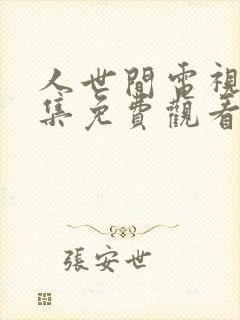 人世間電視
集免費觀看
張安世